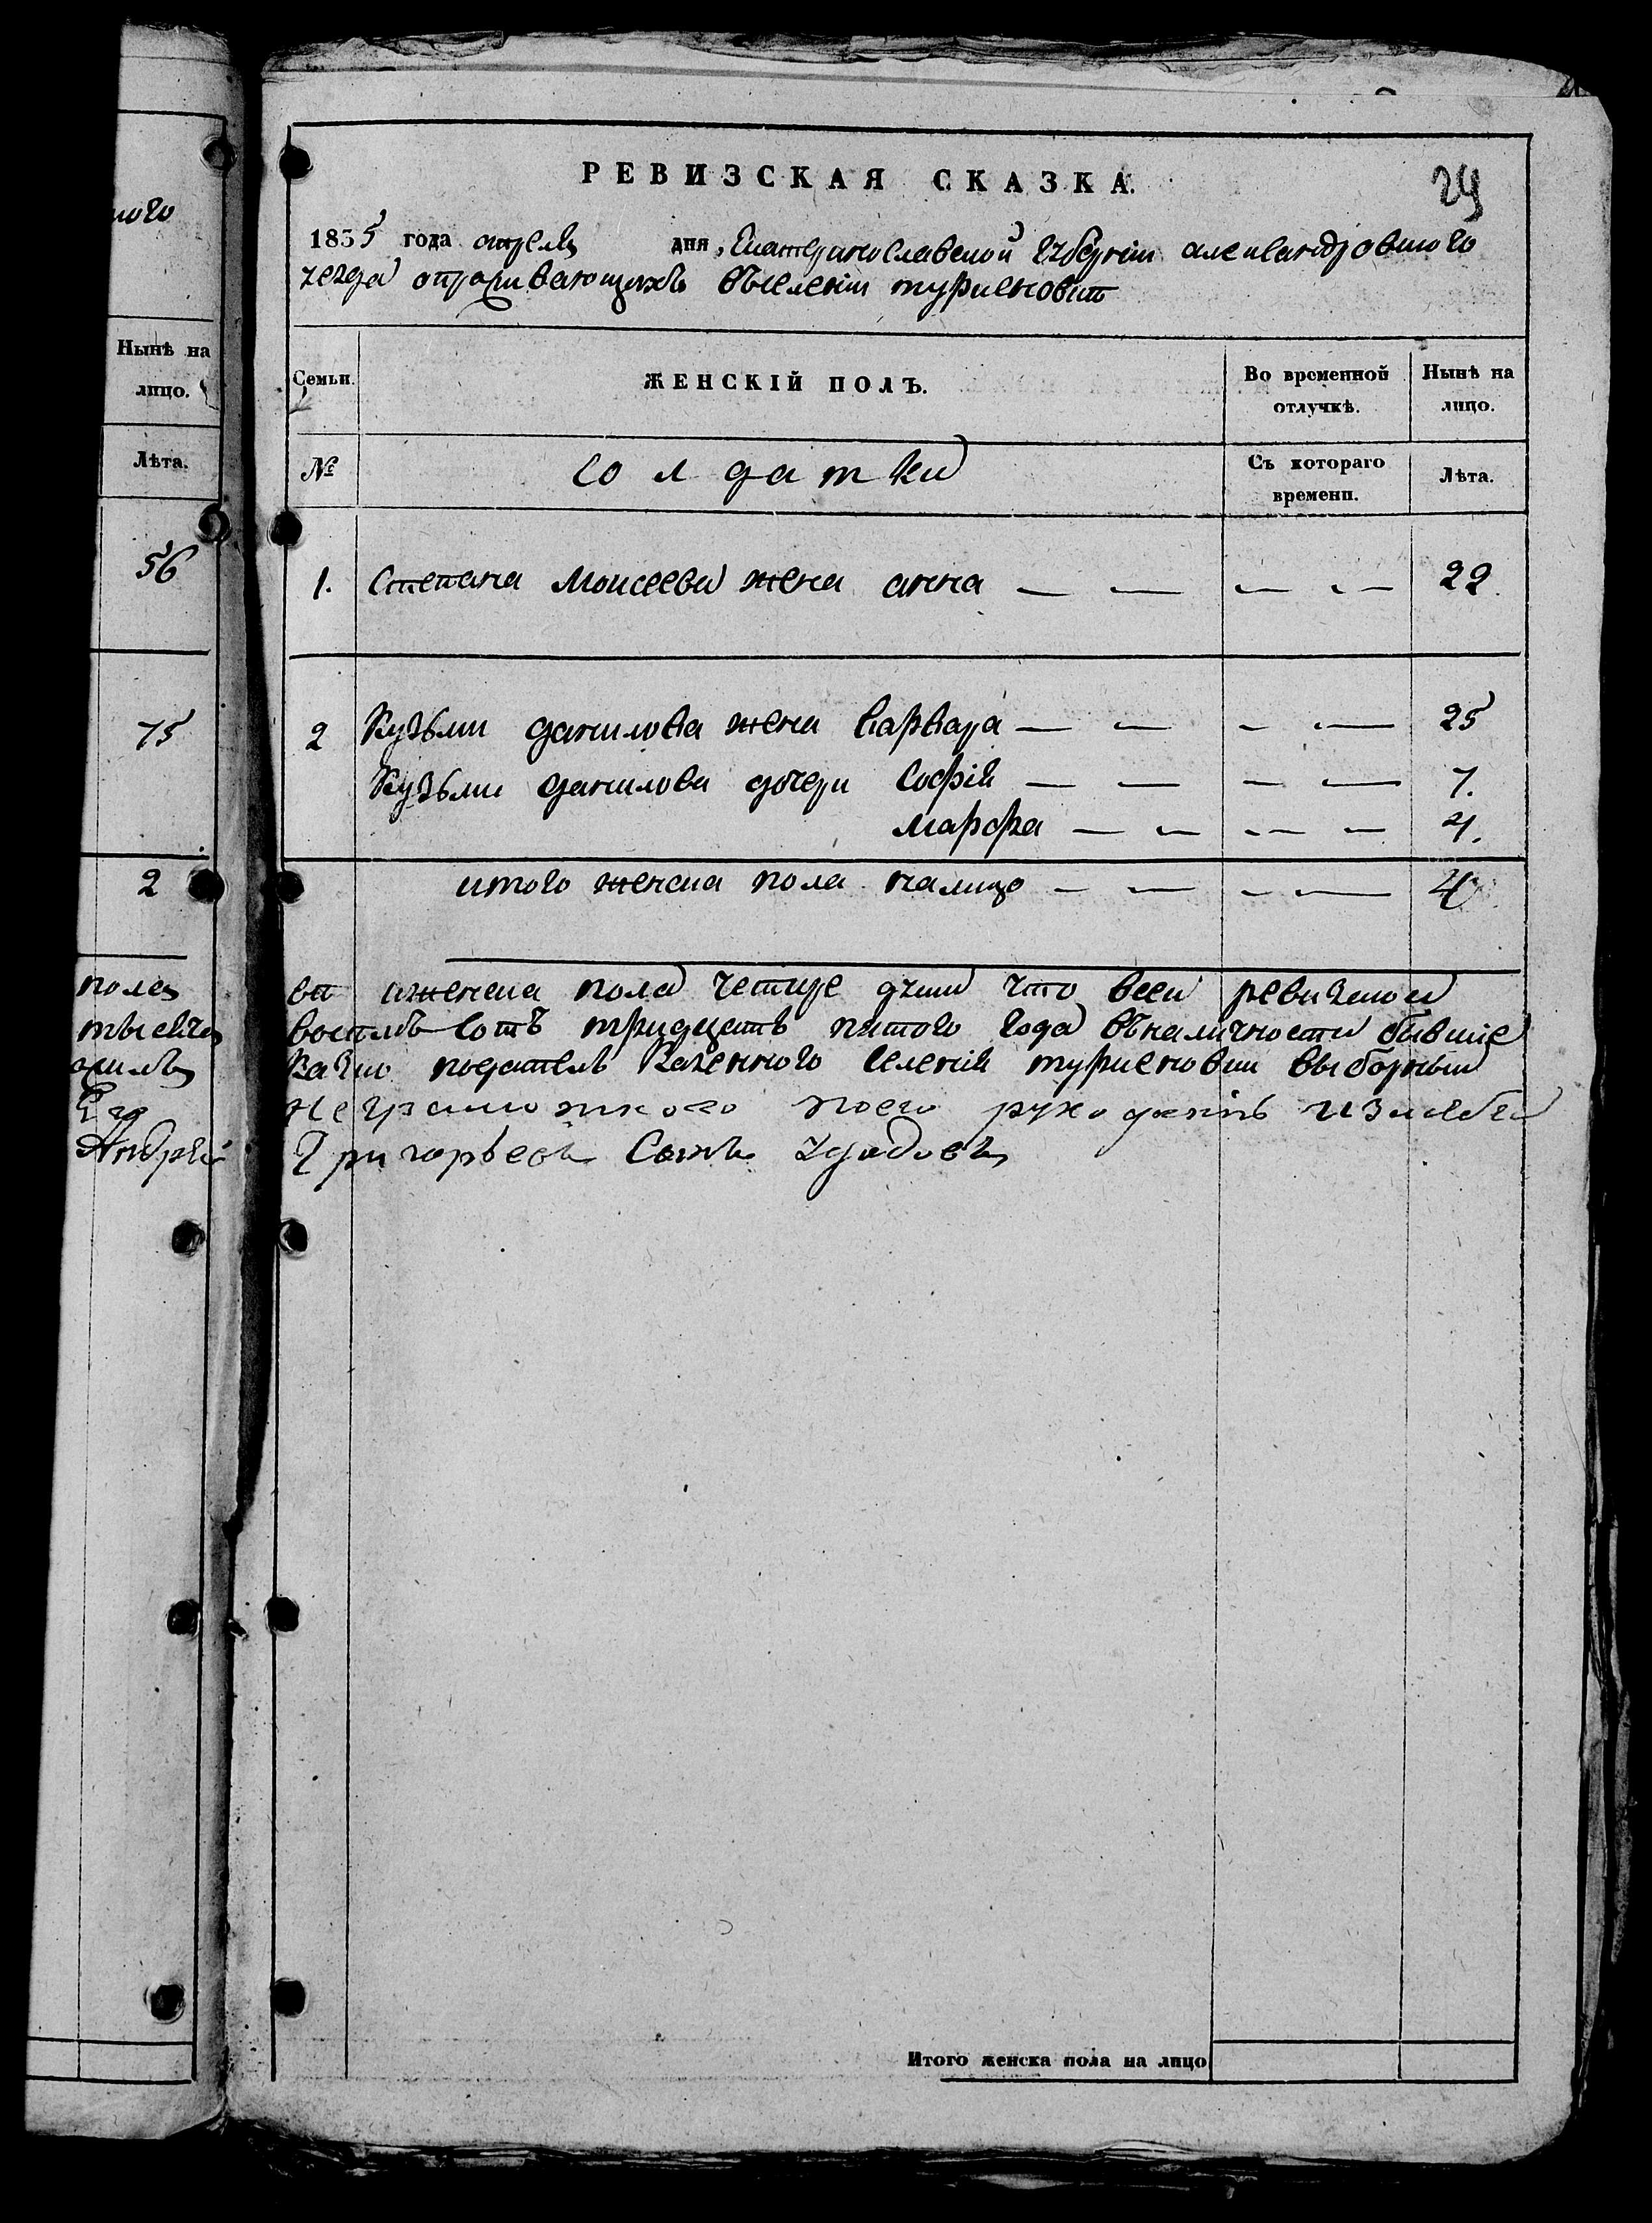 ного
Нынѣ на
лицо.
Лѣта.
56
75
2
полa
тысяча
Андрей
РЕВИЗСКАЯ СКАЗКА.
29
1835 года апреля дня, Екатеринославской губерніи александровскаго
уезда в селеніи туркеновки
Семьи.
ЖЕНСКІЙ ПОЛЪ.
Во временной
отлучкѣ.
Нынѣ на
лицо.
№
солдатки
Съ котораго
времени.
Лѣта.
1. Степана Моисеева жена анна — — — — 22
2 Кузьми данилова жена варвара — — — — 25
Кузьми данилова дочери Софія — — — — 7.
марфа — — — — 4.
итого женска пола налицо — — — — 4
аженска пола четире души что всеи
восемь сотъ тридцать пятого года въналичности бывшіе
казенного селенія туркеновки выборный
неграмотного
Григорьевъ Сынъ
Итого женска пола на лицо